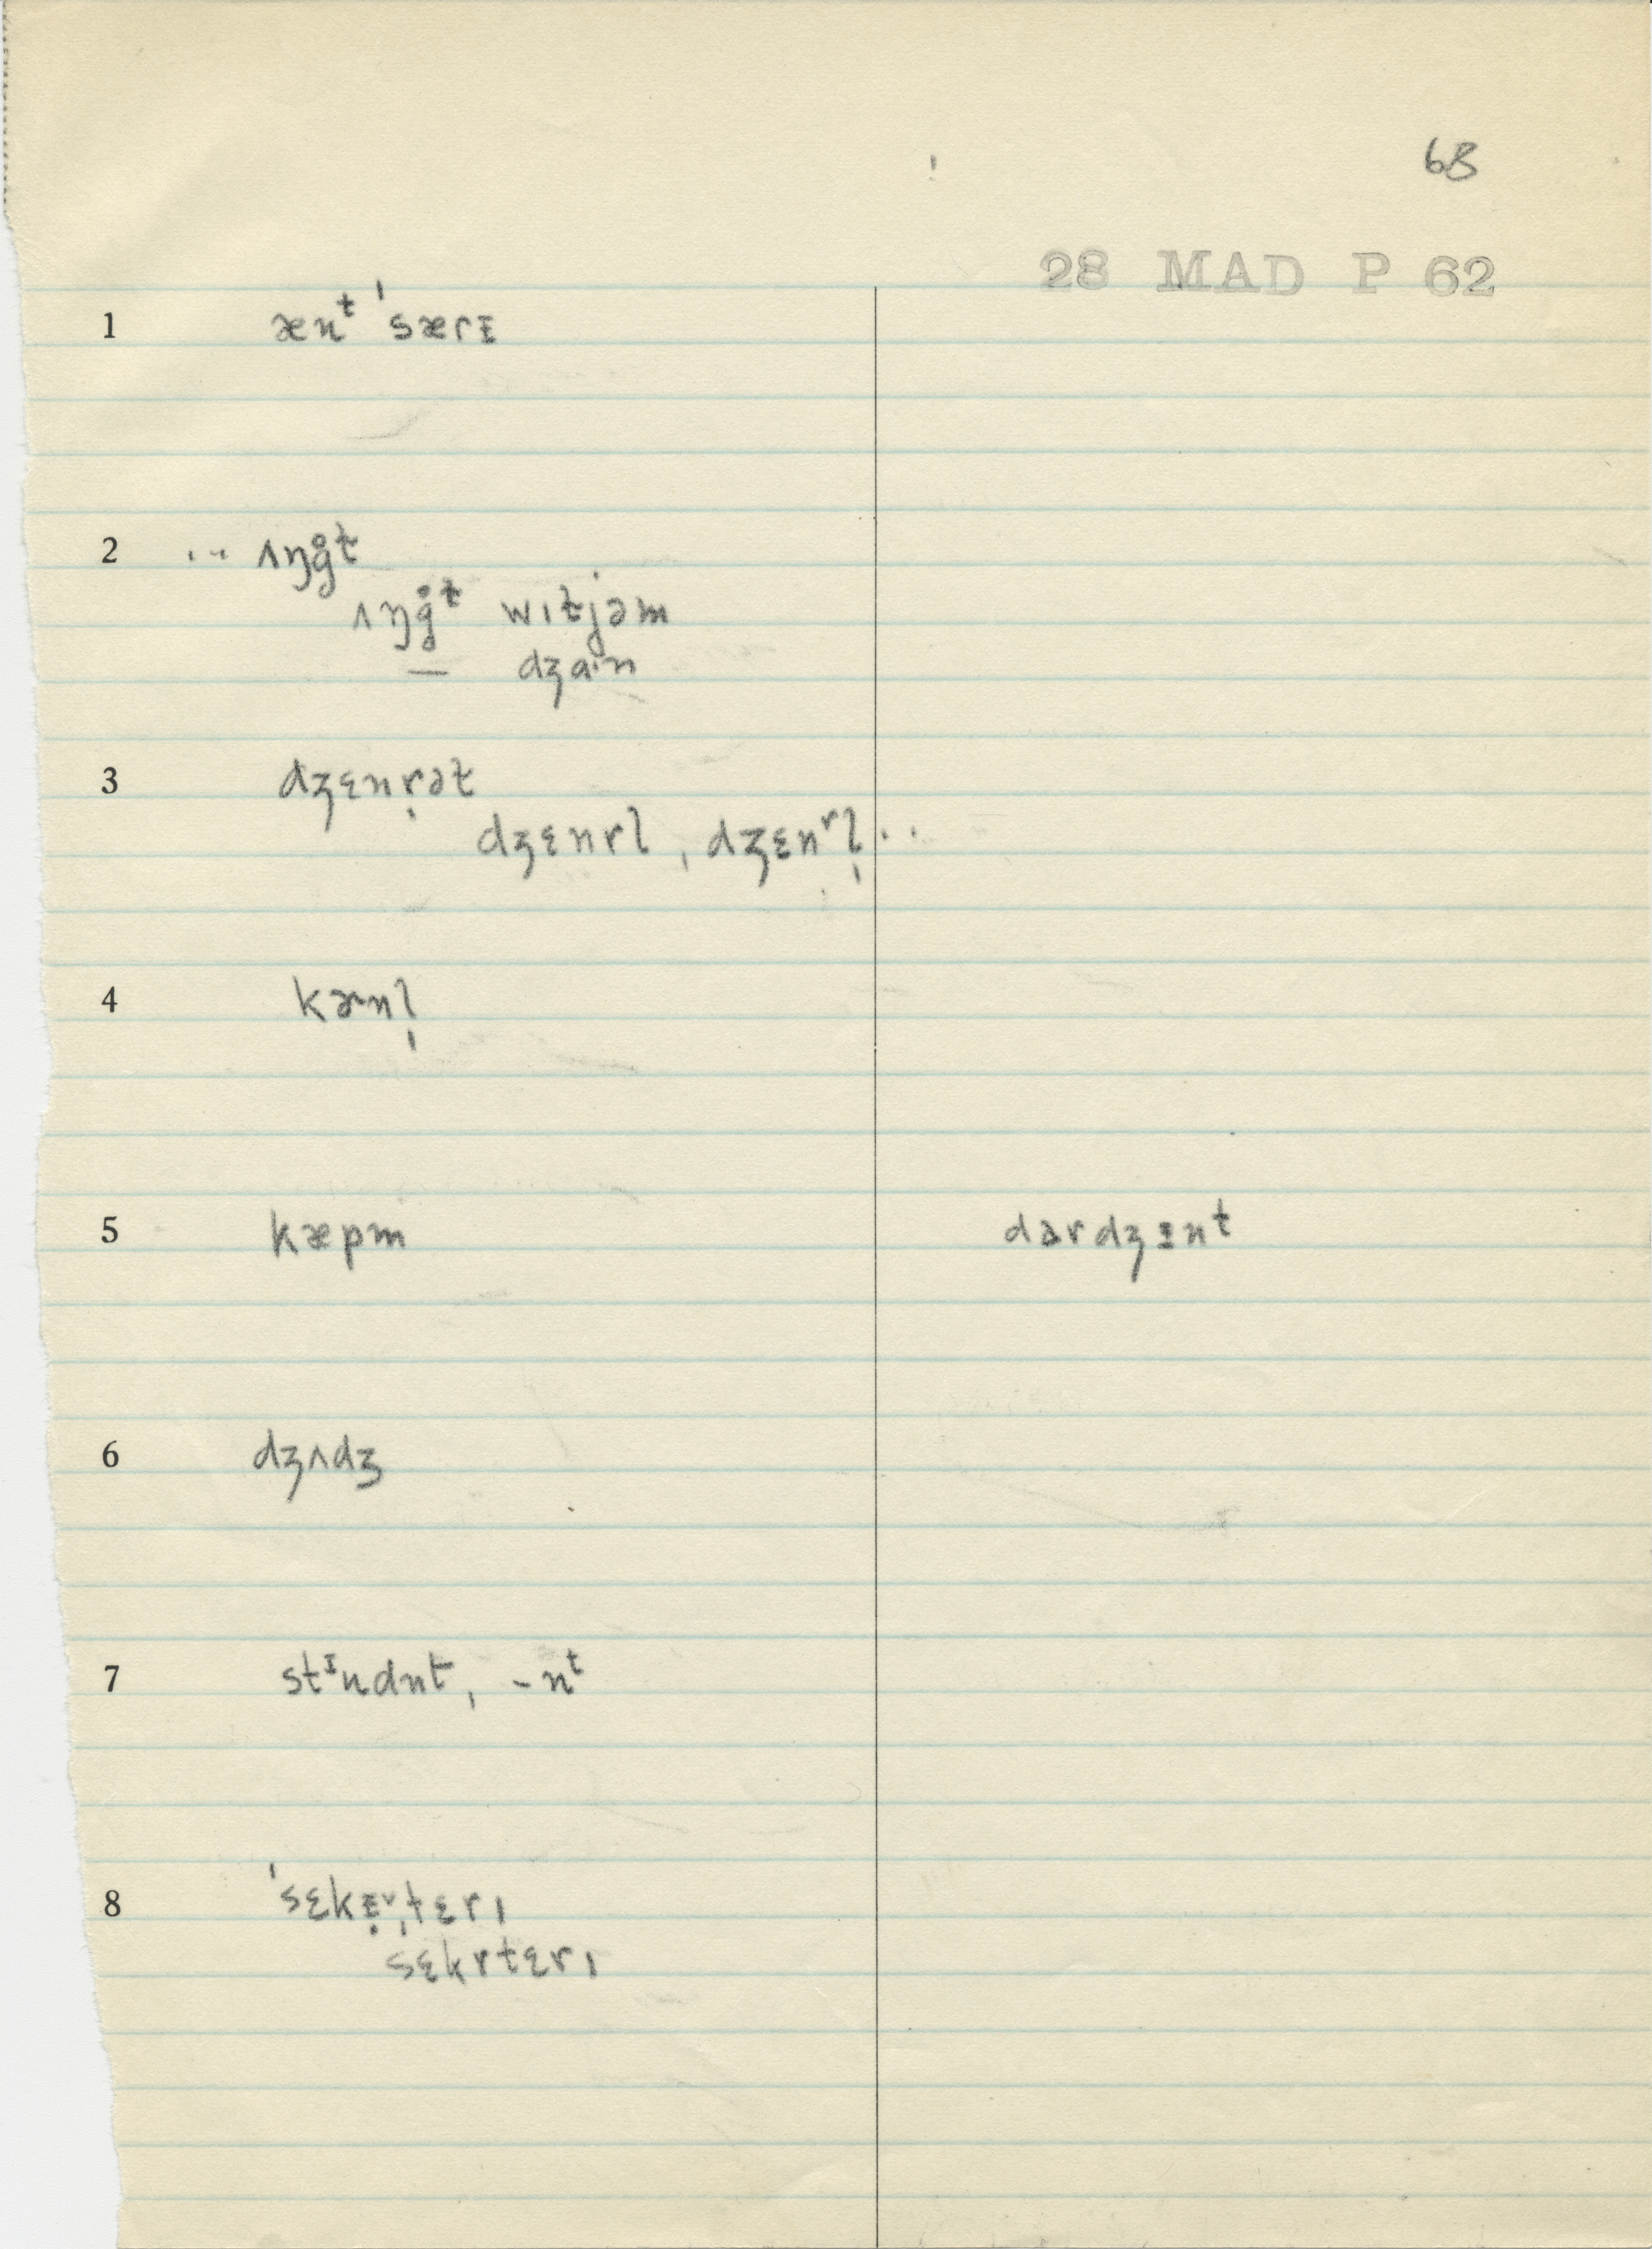 68
28 MAD P 62
1 ænᵗ ˈsærɪ
2 .. ʌŋg̊t
ʌŋg̊ᵗ wɪtjəm
— dʒɑ·n
3 dʒɛnṛət
dʒɛnrl, dʒɛnʳl̩ ..
4 kɚnl̩
5 kæpm dɑrdʒɪnᵗ
6 dʒʌdʒ
7 stᶦundnt, -nᵗ
8 ˈsɛkɪ̣ˌtɛrɪ
sɛkrtɛrɪ